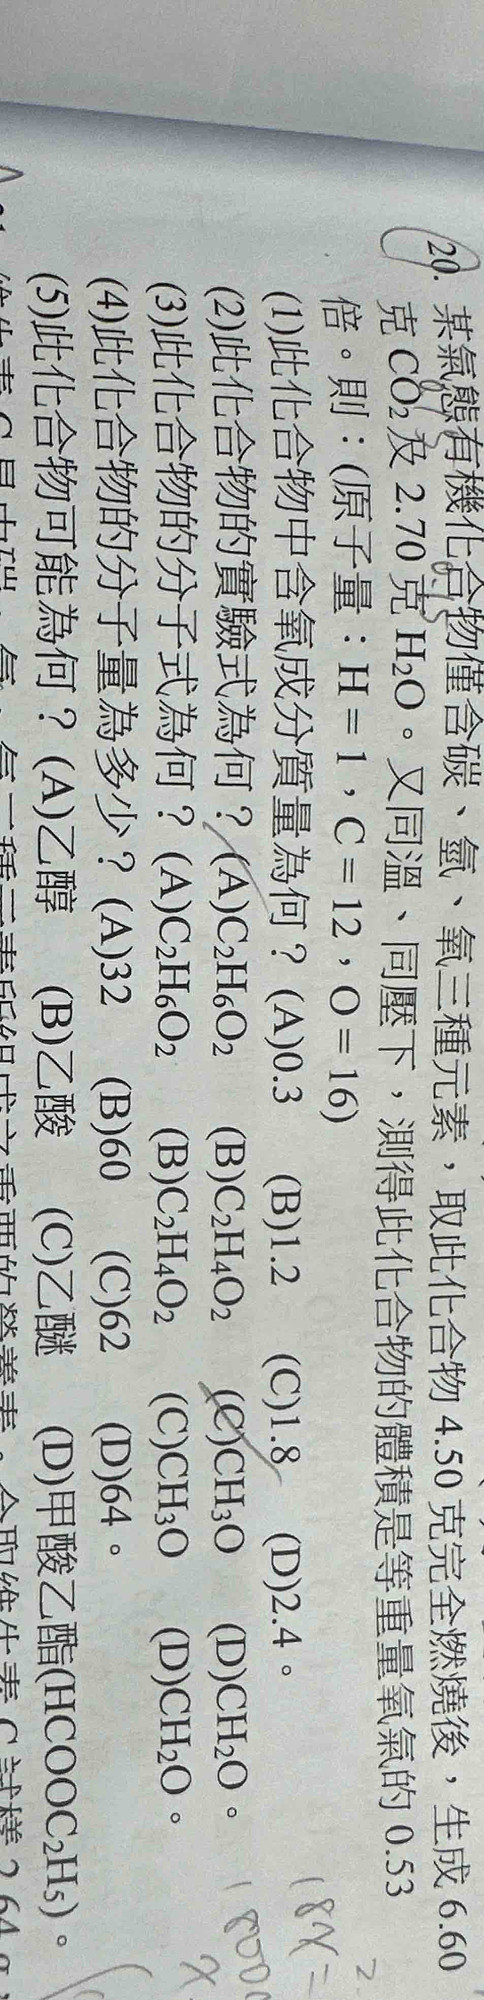 20. 某氣態有機化合物僅含碳、氫、氧三種元素，取此化合物 4.50 克完全燃燒後，生成 6.60
克 CO₂ 及 2.70 克 H₂O。又同溫、同壓下，測得此化合物的體積是等重量氧氣的 0.53
倍。則：(原子量：H＝1，C＝12，O＝16)
(1)此化合物中含氧成分質量為何？(A)0.3 (B)1.2 (C)1.8 (D)2.4。
(2)此化合物的實驗式為何？(A)C₂H₆O₂ (B)C₂H₄O₂ (C)CH₃O (D)CH₂O。
(3)此化合物的分子式為何？(A)C₂H₆O₂ (B)C₂H₄O₂ (C)CH₃O (D)CH₂O。
(4)此化合物的分子量為多少？(A)32 (B)60 (C)62 (D)64。
(5)此化合物可能為何？(A)乙醇 (B)乙酸 (C)乙醚 (D)甲酸乙酯(HCOOC₂H₅)。
18x=